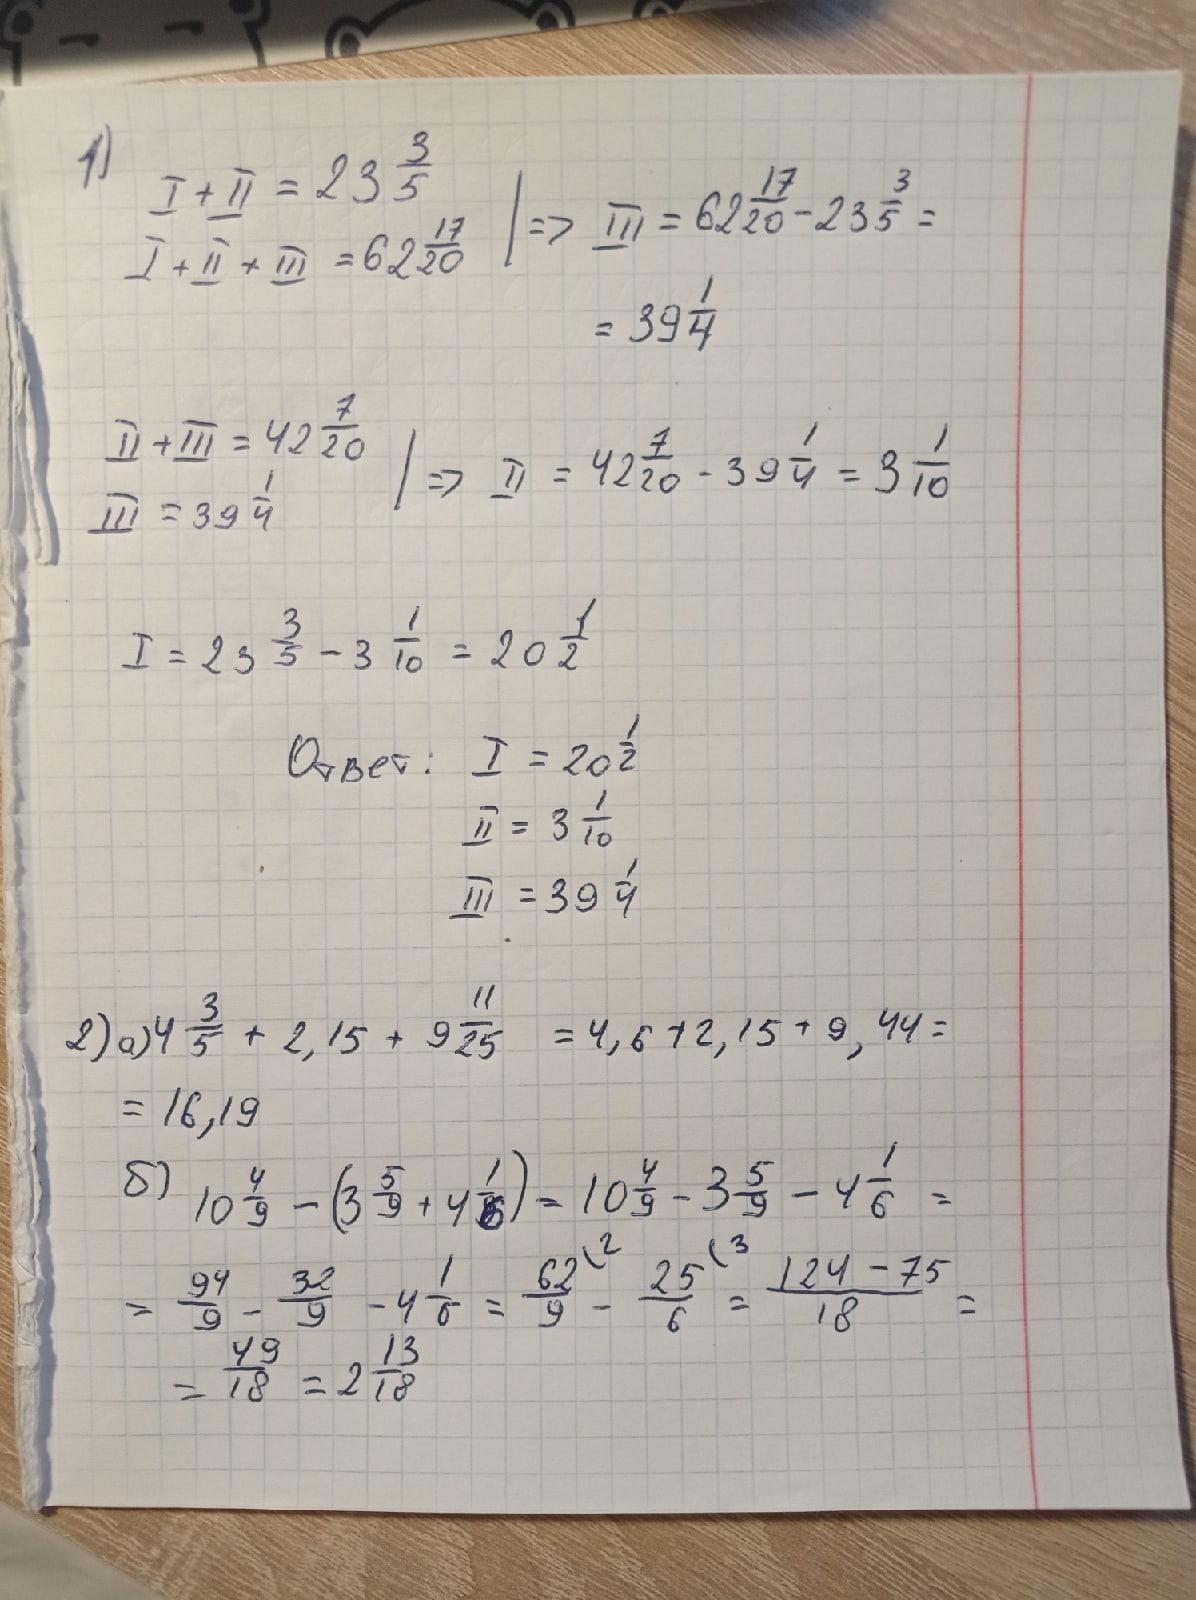 1)
I + II = 23 3/5 | => III = 62 17/20 - 23 3/5 =
I + II + III = 62 17/20
= 39 1/4
II + III = 42 7/20 | => II = 42 7/20 - 39 1/4 = 3 1/10
III = 39 1/4
I = 23 3/5 - 3 1/10 = 20 1/2
Ответ: I = 20 1/2
II = 3 1/10
III = 39 1/4
2) а) 4 3/5 + 2,15 + 9 11/25 = 4,6 + 2,15 + 9,44 =
= 16,19
б) 10 4/9 - (3 5/9 + 4 1/6) = 10 4/9 - 3 5/9 - 4 1/6 =
= 94/9 - 32/9 - 4 1/6 = 62/9 (2 - 25/6 (3 = 124 - 75/18 =
= 49/18 = 2 13/18